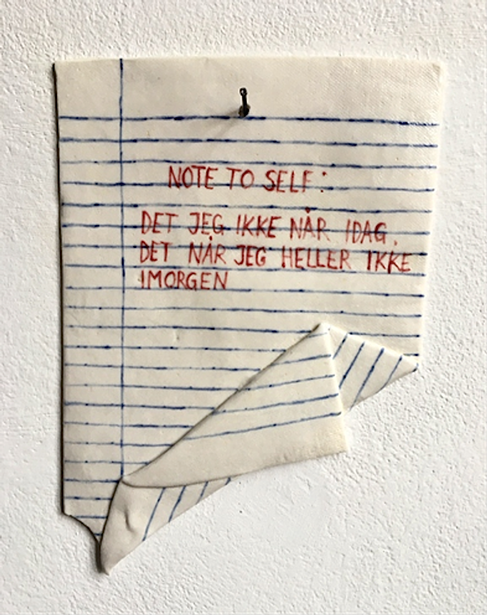 NOTE TO SELF:
DET JEG IKKE NÅR IDAG,
DET NÅR JEG HELLER IKKE
IMORGEN